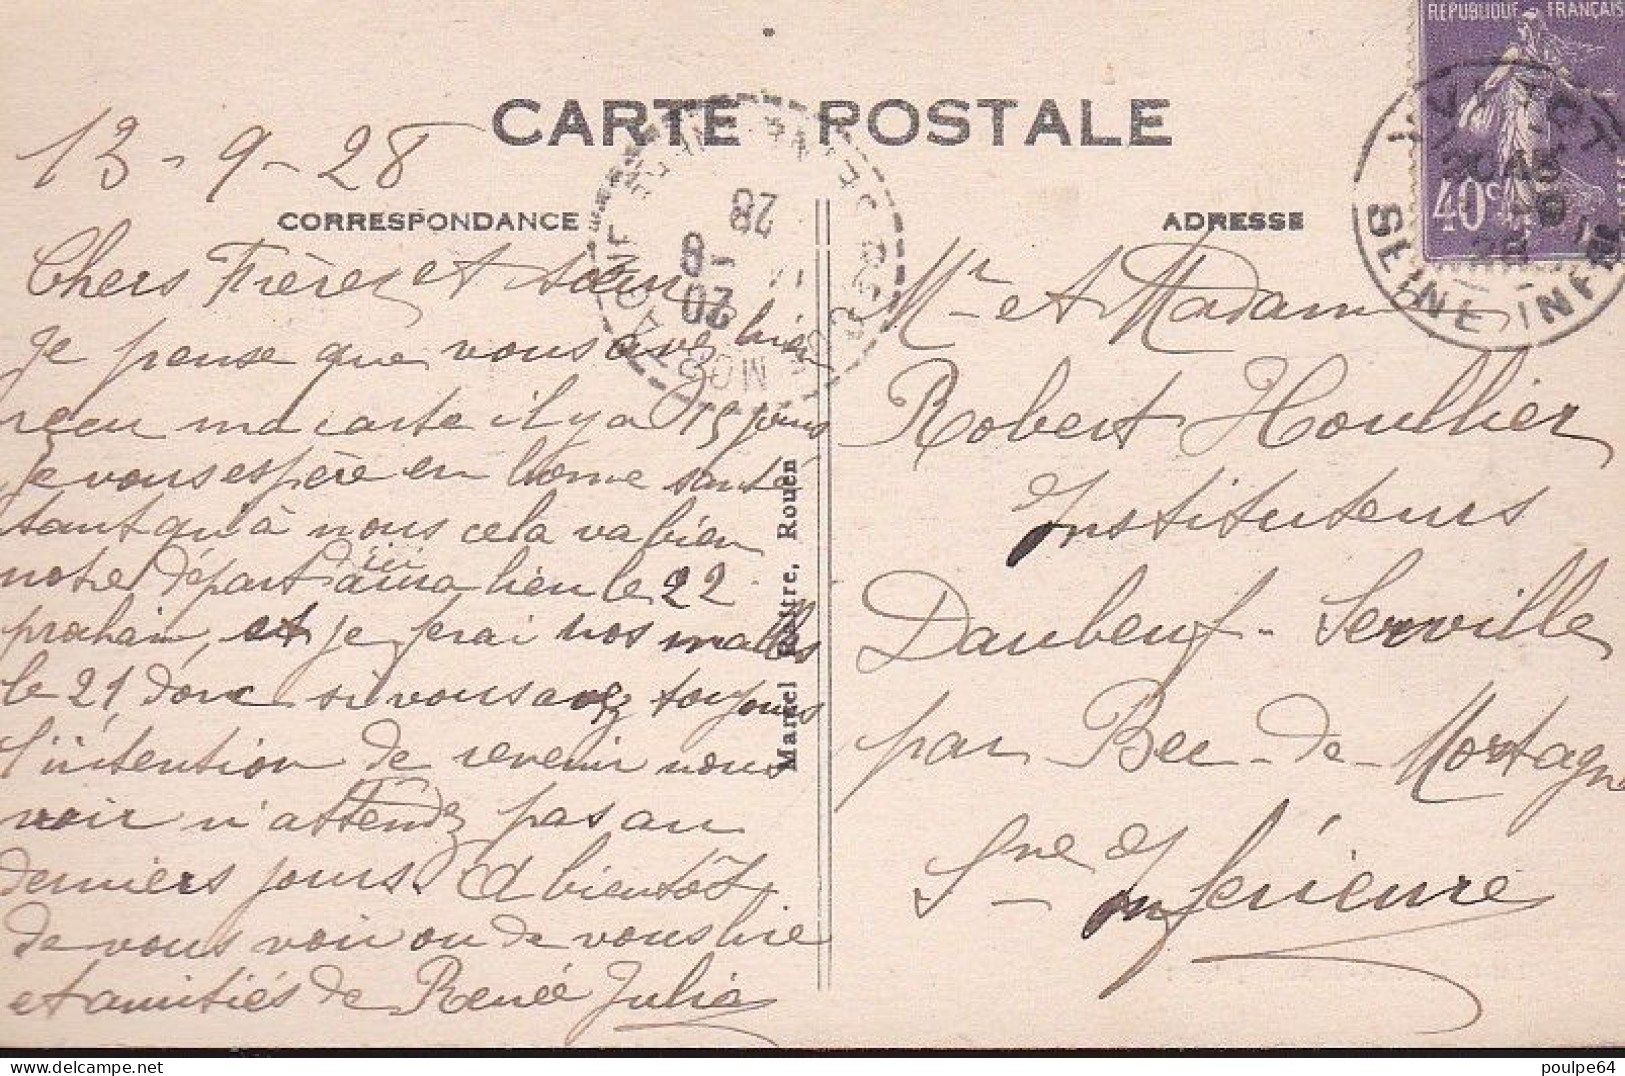 CARTE POSTALE
13-9-28
CORRESPONDANCE
Chers Frères et sœur
Je pense que vous avez bien
reçu ma carte il y a 15 jours
Je vous espère en bonne santé
tant qu'à nous cela va bien
notre départ d'ici aura lieu le 22
prochain, et je ferai nos malles
le 21 donc si vous avez toujours
l'intention de revenir nous
voir n'attendez pas au
derniers jours. A bientôt
de vous voir ou de vous lire
et amitiés de Renée Julia
Marcel Rouen
ADRESSE
Mr et Madame
Robert Houllier
Instituteurs
Daubeuf-Serville
par Bec-de-Mortagne
Sne Inférieure
REPUBLIQUE FRANÇAISE
40c
YVETOT
SEINE INFRE
20 -9
28
poulpe64